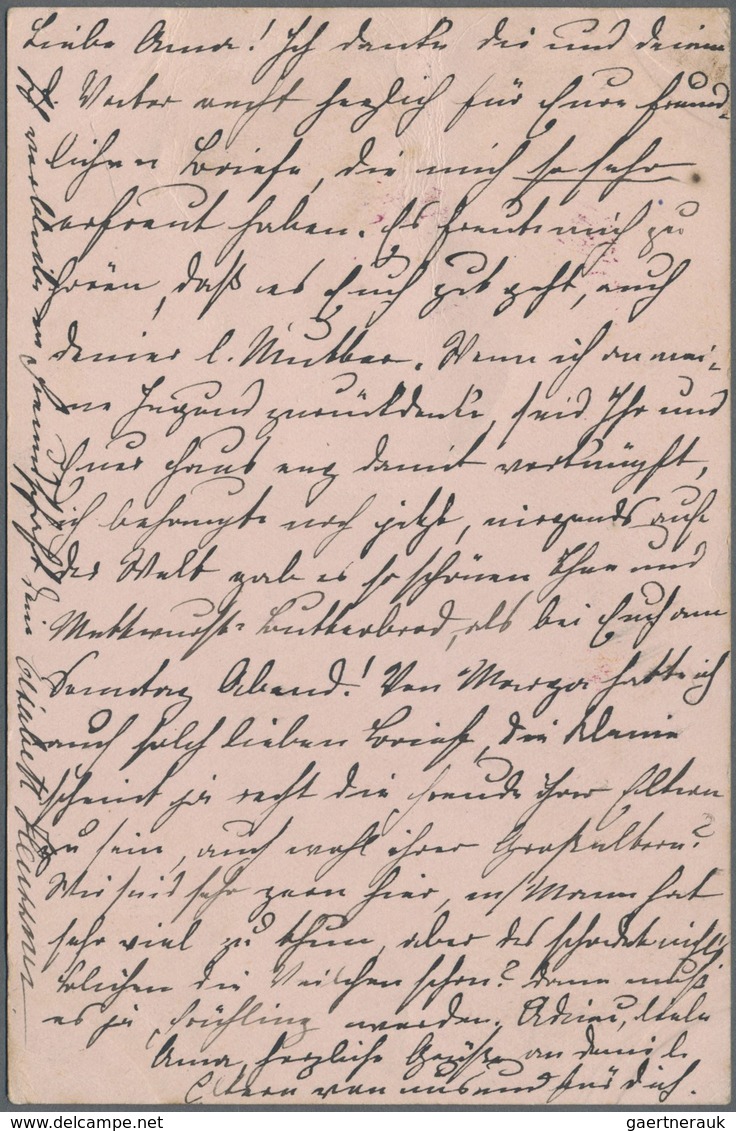 Liebe Anna! Ich danke dir und deinem
l. Vater recht herzlich für Eure freund-
lichen Briefe, die mich so sehr
erfreut haben. Es freute mich zu
hören, daß es Euch gut geht, auch
deiner l. Mutter. Wenn ich an mei-
ne Jugend zurückdenke, seid Ihr und
Euer Haus eng damit verknüpft,
ich behaupte noch jetzt, nirgends auf
der Welt gab es so schönen Thee und
Mettwurst-Butterbrod, als bei Euch am
Sonntag Abend! Von Marga hatte ich
auch solch lieben Brief, die Kleine
scheint ja recht die Freude ihrer Eltern
zu sein, auch wohl ihrer Großeltern?
Wir sind sehr gern hier, m/Mann hat
sehr viel zu thun, aber das schadet nichts
blühen die Veilchen schon? dann muß
es ja Frühling werden. Adieu, liebe
Anna, herzliche Grüße an deine l.
Eltern von uns und für dich.
Ich verbleibe in Freundschaft deine Elisabeth